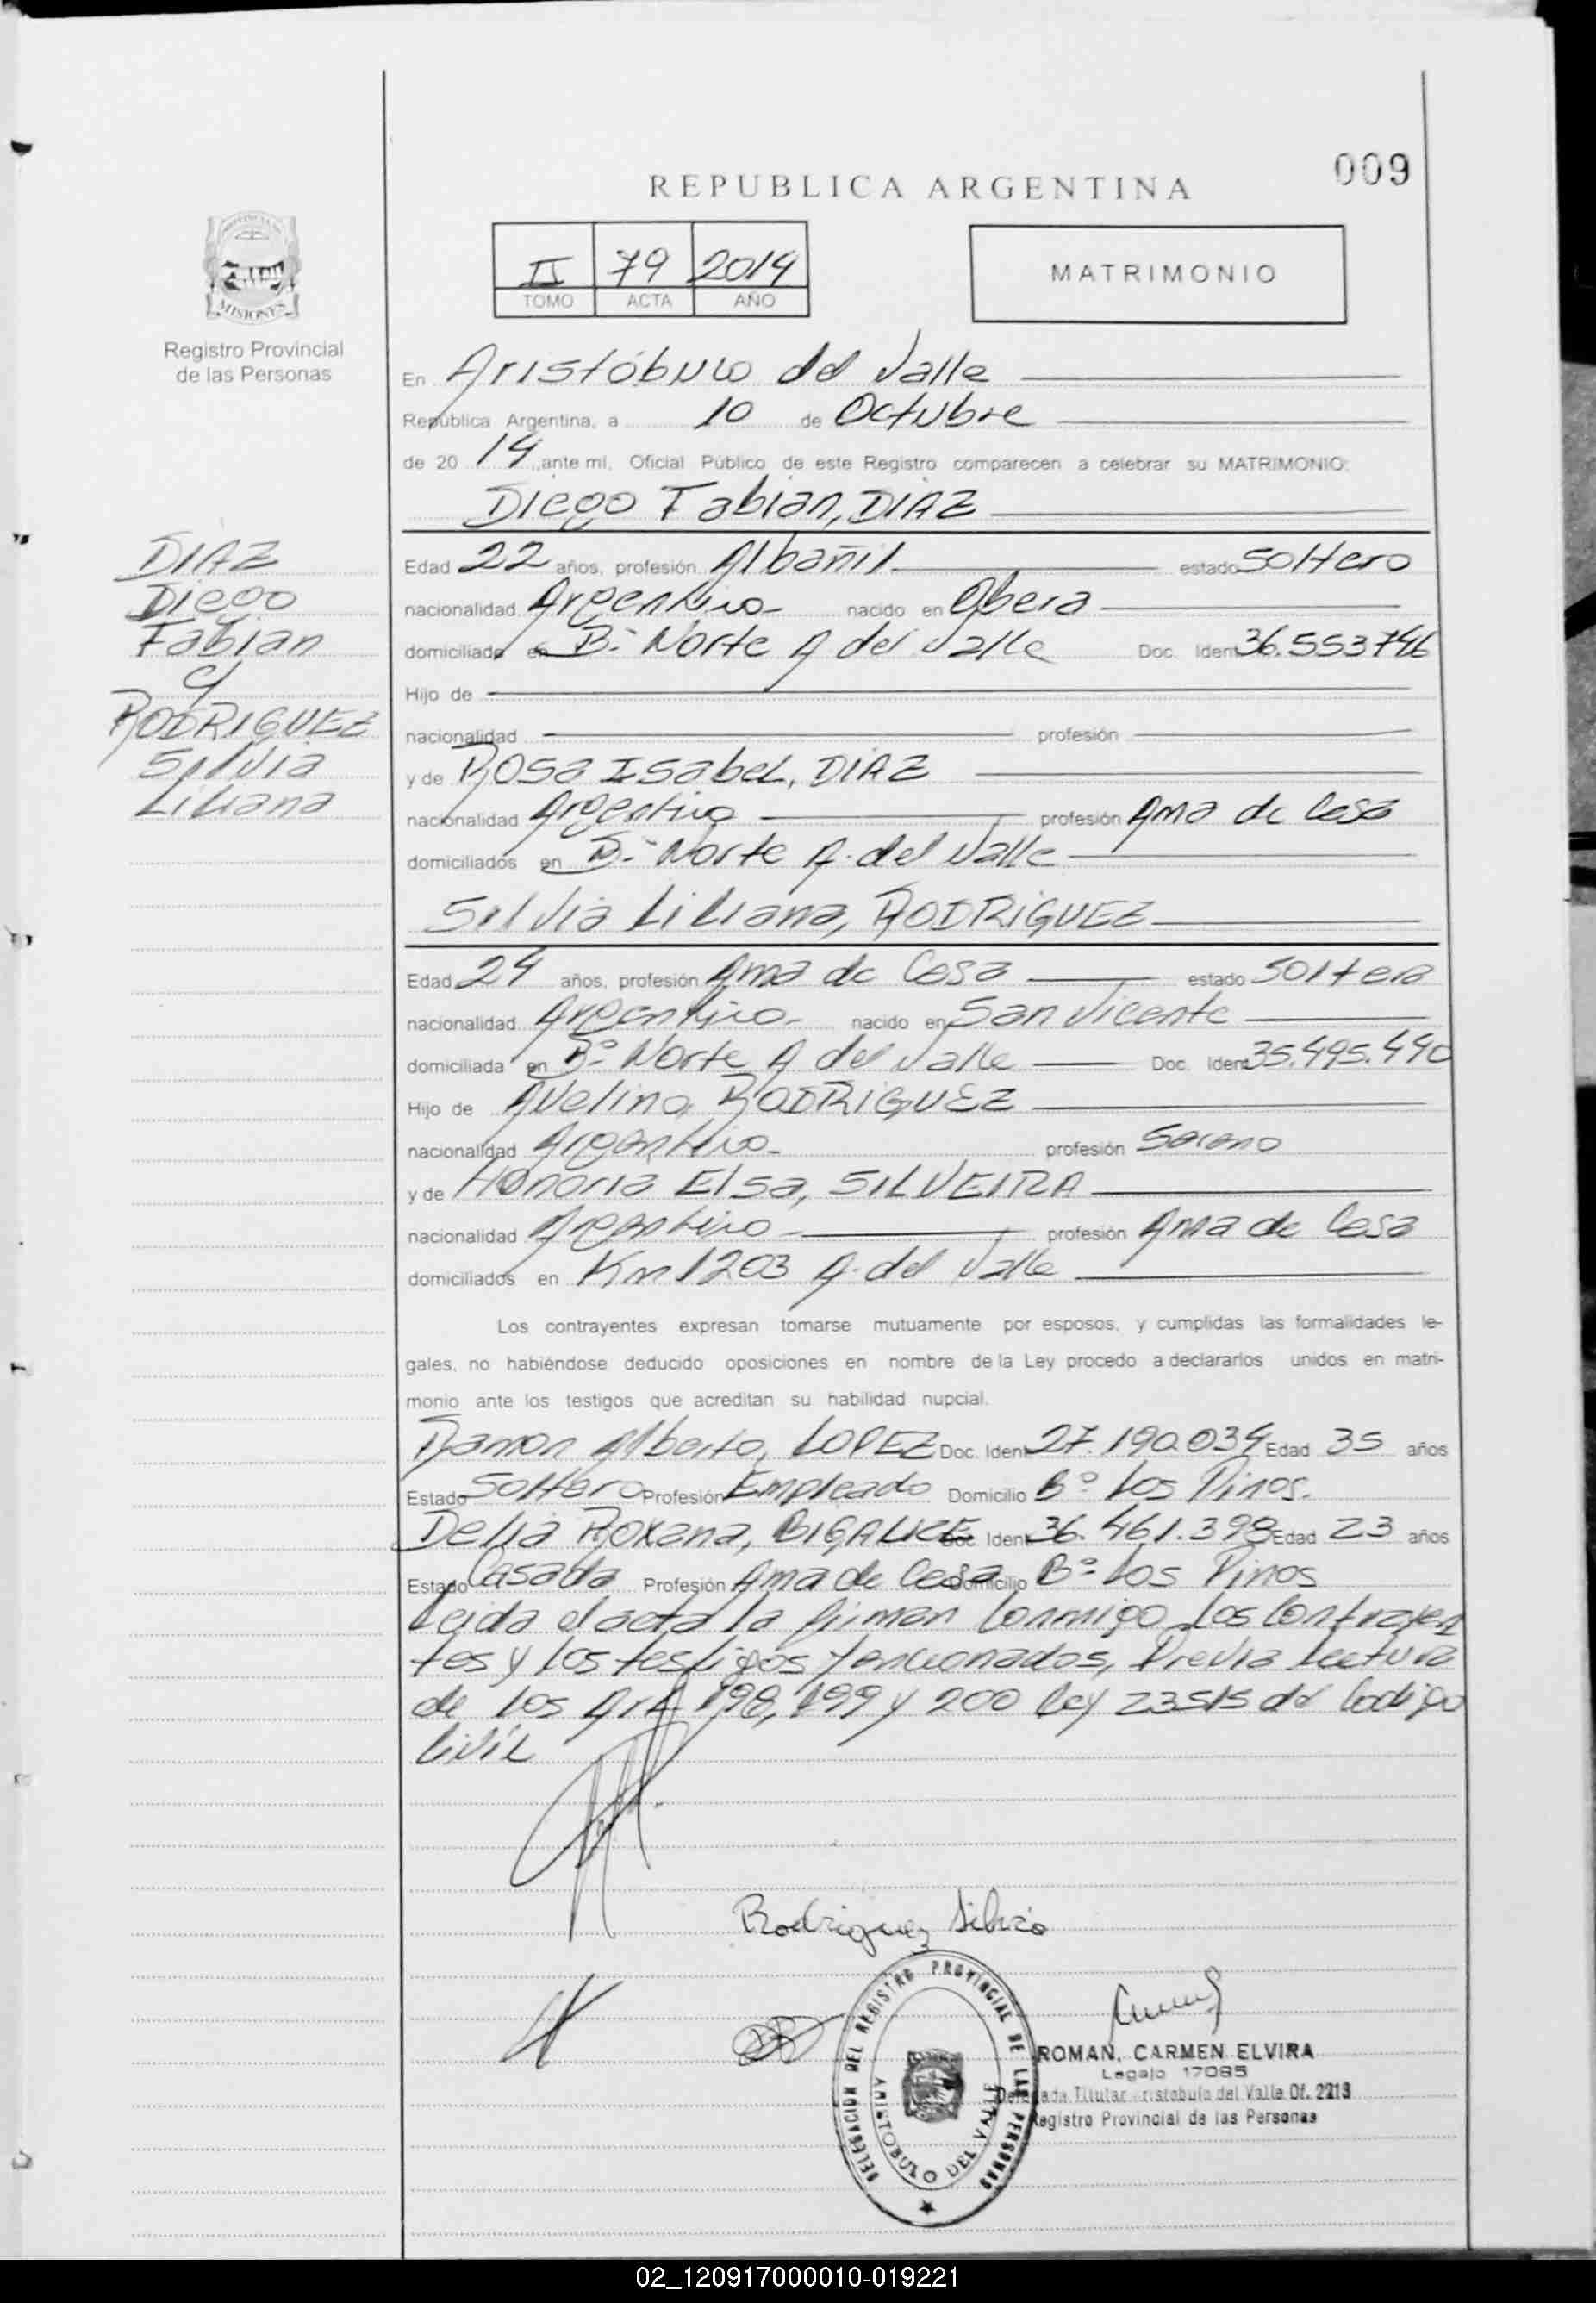 009
REPUBLICA ARGENTINA
II 79 2014
TOMO ACTA AÑO
MATRIMONIO
MISIONES
Registro Provincial
de las Personas
En Aristóbulo del Valle
República Argentina, a 10 de Octubre
de 20 14 ,ante mí, Oficial Público de este Registro comparecen a celebrar su MATRIMONIO:
Diego Fabian, DIAZ
DIAZ
Diego
Fabian
y
RODRIGUEZ
Silvia
Liliana
Edad 22 años, profesión Albañil estado Soltero
nacionalidad Argentino nacido en Obera
domiciliado en Bº Norte A del Valle Doc. Ident 36.553746
Hijo de
nacionalidad profesión
y de Rosa Isabel, DIAZ
nacionalidad Argentina profesión Ama de Casa
domiciliados en Bº Norte A. del Valle
Silvia Liliana, RODRIGUEZ
Edad 24 años, profesión Ama de Casa estado Soltera
nacionalidad Argentino nacido en San Vicente
domiciliada en Bº Norte A del Valle Doc. Ident 35.495.440
Hijo de Avelino, RODRIGUEZ
nacionalidad Argentino profesión Sereno
y de Honoria Elsa, SILVEIRA
nacionalidad Argentino profesión Ama de Casa
domiciliados en Km 1203 A. del Valle
Los contrayentes expresan tomarse mutuamente por esposos, y cumplidas las formalidades le-
gales, no habiéndose deducido oposiciones en nombre de la Ley procedo a declararlos unidos en matri-
monio ante los testigos que acreditan su habilidad nupcial.
Ramon Alberto, LOPEZ Doc. Ident 27.190.034 Edad 35 años
Estado Soltero Profesión Empleado Domicilio Bº Los Pinos.
Delia Roxana, Doc. Ident 36.461.398 Edad 23 años
Estado Casada Profesión Ama de Casa Domicilio Bº Los Pinos
Leida el acta la firman Conmigo los Contrayen
tes y los testigos mencionados, Previa Lectura
de los Art 198, 199 y 200 Ley 23515 del Codigo
Civil
Rodriguez Silvia
DELEGACION DEL REGISTRO PROVINCIAL DE LAS PERSONAS
ARISTOBULO DEL VALLE
ROMAN, CARMEN ELVIRA
Legajo 17085
Titular ristobulo del Valle Of. 2213
Registro Provincial de las Personas
02_120917000010-019221